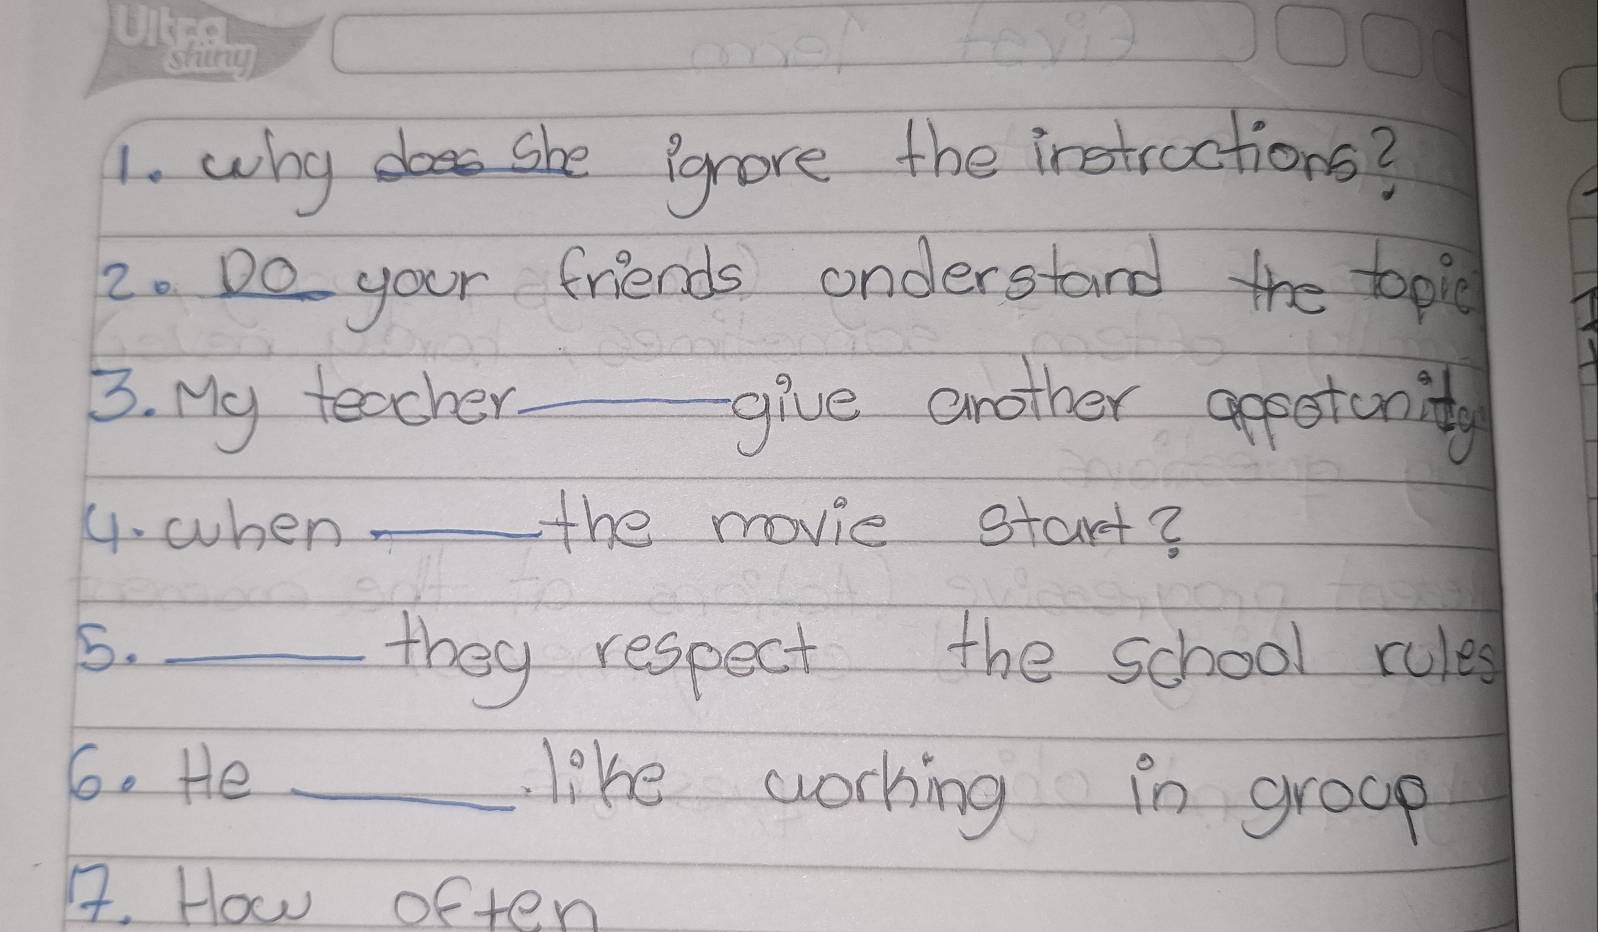 Ultra
shiny
1. why does she ignore the instructions?
2. Do your friends understand the topic
3. My teacher______give another
4. when _____ the movie start?
5. ______ they respect the school rules
6. He ______ like working in group
7. How often